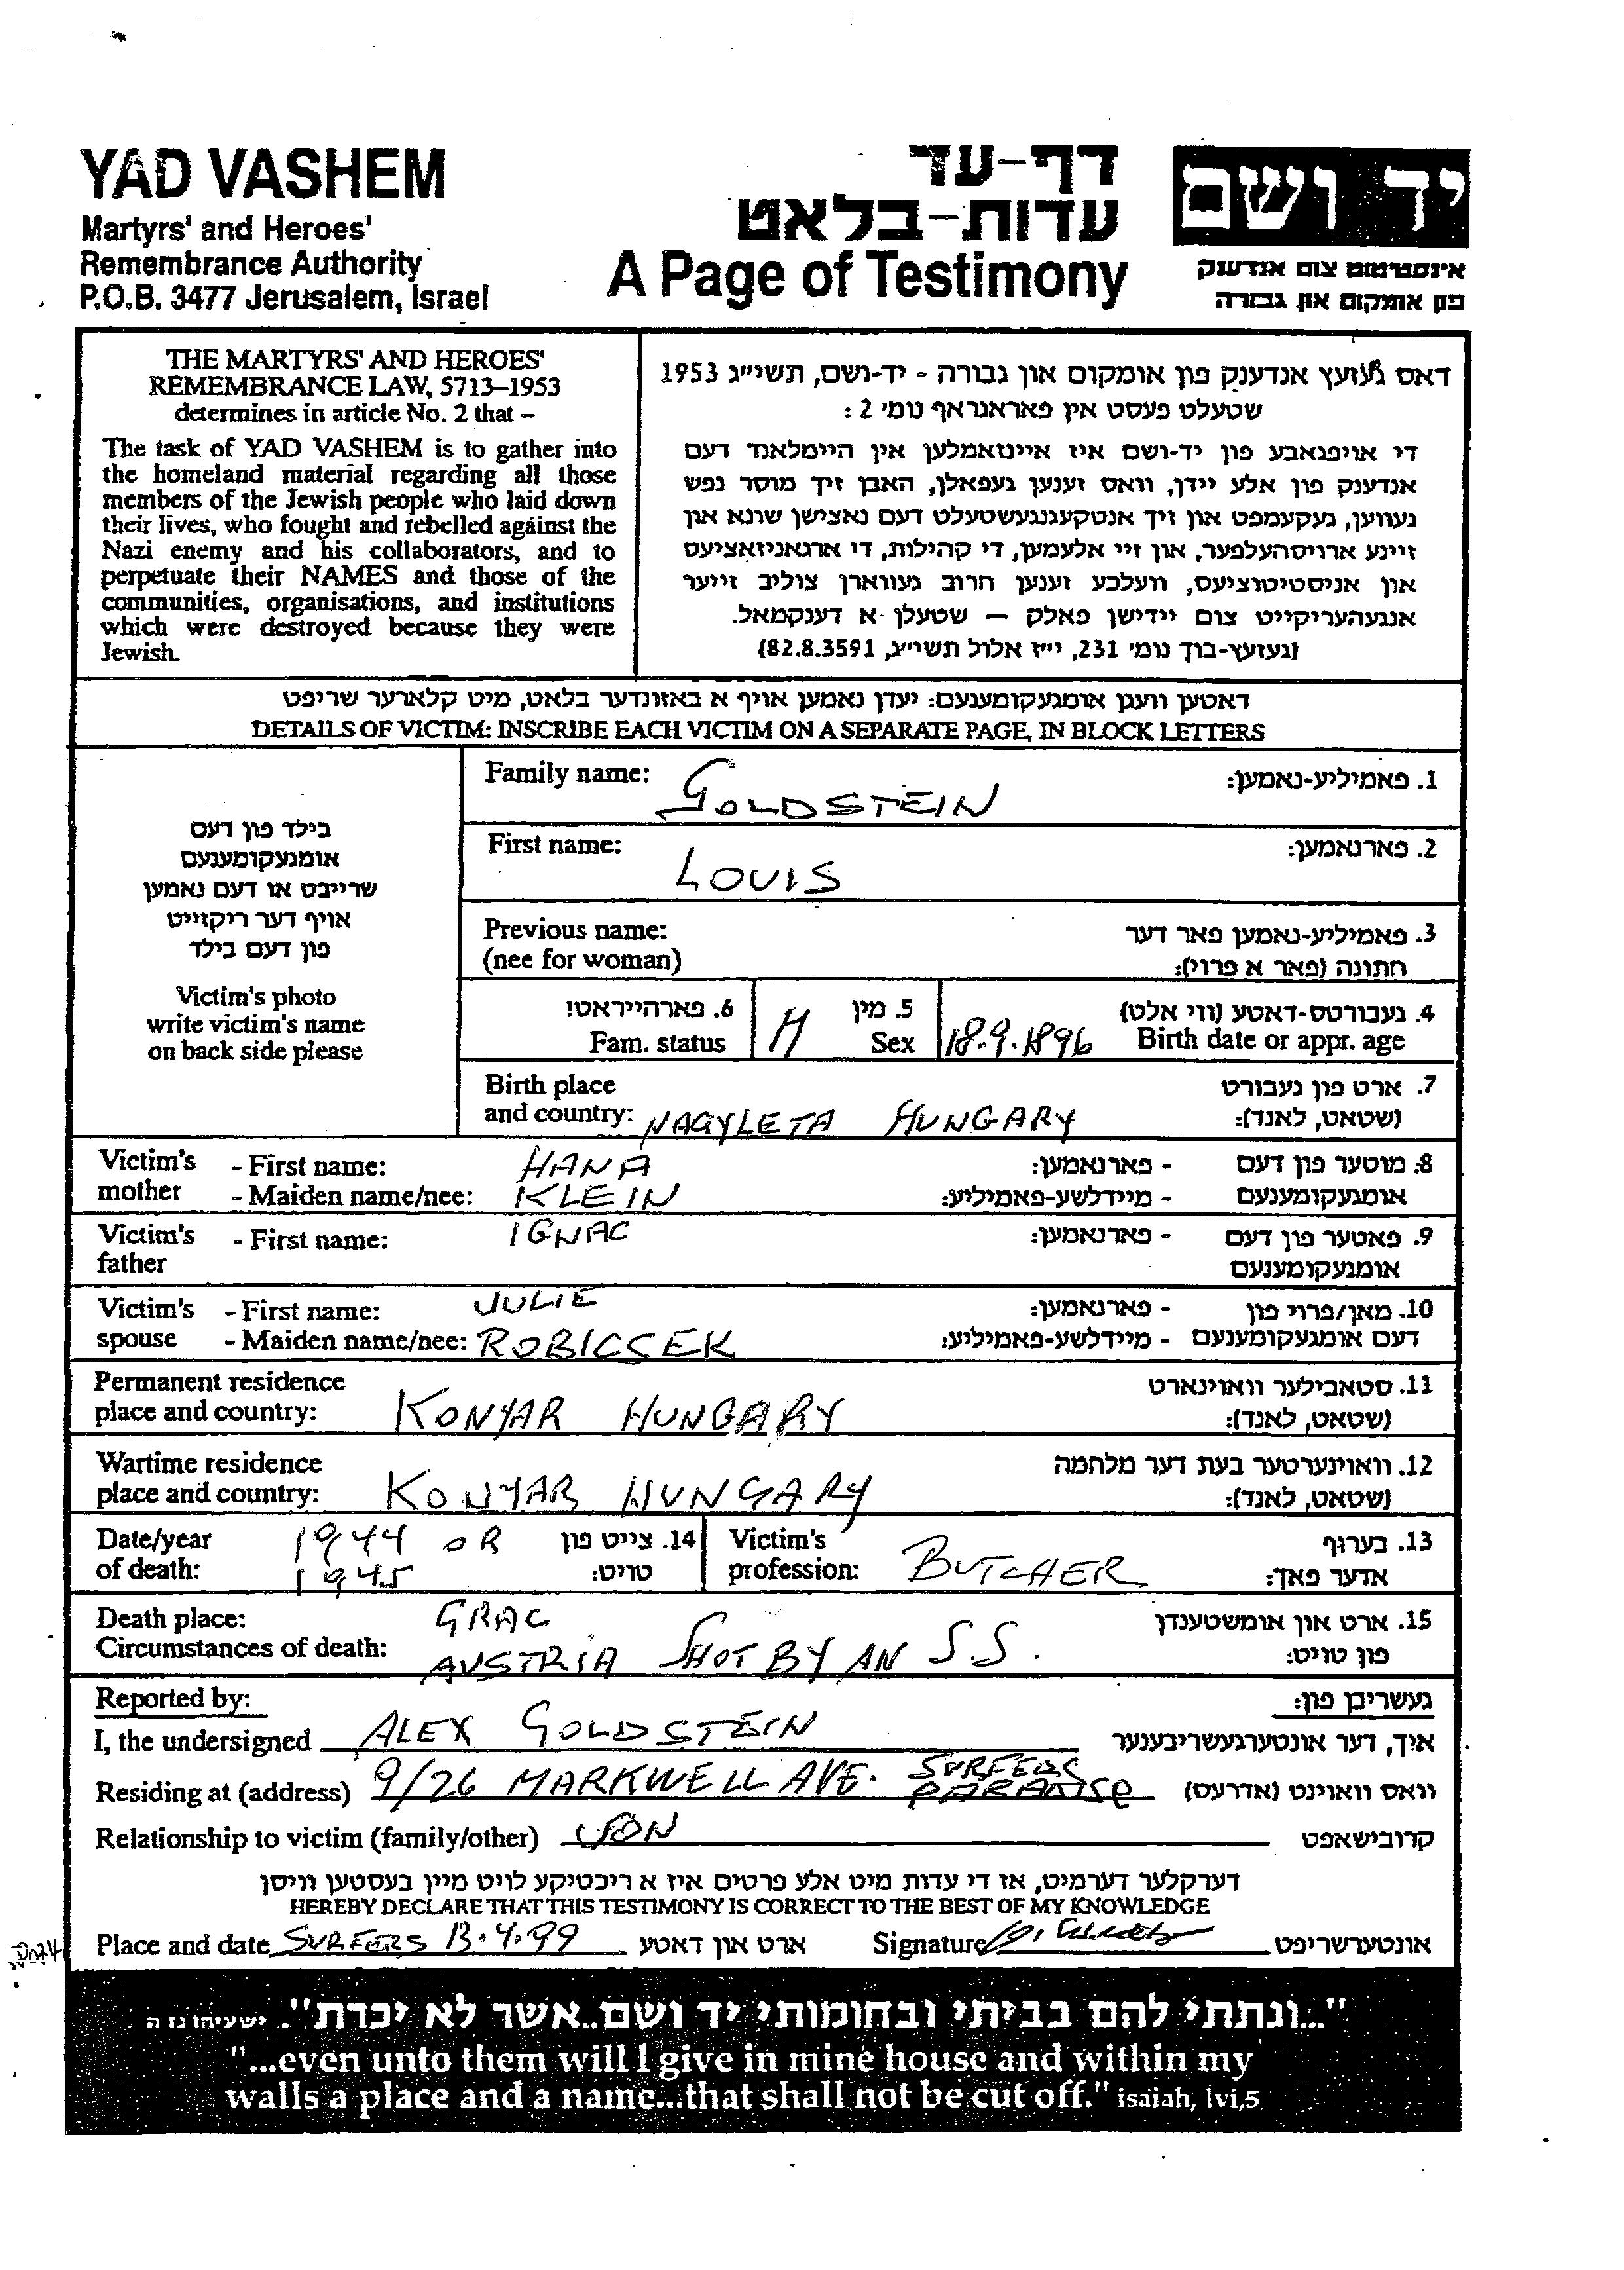 YAD VASHEM
Martyrs' and Heroes'
Remembrance Authority
P.O.B. 3477 Jerusalem, Israel
דף-עד
עדות-בלאט
A Page of Testimony
יד ושם
אינסטיטוט צום אנדענק
פון אומקום און גבורה
THE MARTYRS' AND HEROES'
REMEMBRANCE LAW, 5713–1953
determines in article No. 2 that –
The task of YAD VASHEM is to gather into
the homeland material regarding all those
members of the Jewish people who laid down
their lives, who fought and rebelled against the
Nazi enemy and his collaborators, and to
perpetuate their NAMES and those of the
communities, organisations, and institutions
which were destroyed because they were
Jewish.
דאס געזעץ אנדענק פון אומקום און גבורה - יד-ושם, תשי״ג 1953
שטעלט פעסט אין פאראגראף נומ׳ 2 :
די אויפגאבע פון יד-ושם איז איינזאמלען אין היימלאנד דעם
אנדענק פון אלע יידן, וואס זענען געפאלן, האבן זיך מוסר נפש
געווען, געקעמפט און זיך אנטקעגנגעשטעלט דעם נאצישן שונא און
זיינע ארויסהעלפער, און זיי אלעמען, די קהילות, די ארגאניזאציעס
און אניסטיטוציעס, וועלכע זענען חרוב געווארן צוליב זייער
אנגעהעריקייט צום יידישן פאלק — שטעלן א דענקמאל.
(געזעץ-בוך נומ׳ 231, י״ז אלול תשי״ג, 82.8.3591)
דאטען וועגן אומגעקומענעם: יעדן נאמען אויף א באזונדער בלאט, מיט קלארער שריפט
DETAILS OF VICTIM: INSCRIBE EACH VICTIM ON A SEPARATE PAGE, IN BLOCK LETTERS
בילד פון דעם
אומגעקומענעם
שרייבט או דעם נאמען
אויף דער ריקזייט
פון דעם בילד
Victim's photo
write victim's name
on back side please
Family name: GOLDSTEIN 1. פאמיליע-נאמען:
First name: LOUIS 2. פארנאמען:
Previous name: 3. פאמיליע-נאמען פאר דער
(nee for woman) חתונה (פאר א פרוי):
6. פארהייראט! 5. מין 4. געבורטס-דאטע (ווי אלט)
Fam. status M Sex 18.9.1896 Birth date or appr. age
Birth place 7. ארט פון געבורט
and country: NAGYLETA HUNGARY (שטאט, לאנד):
Victim's - First name: HANA - פארנאמען: 8. מוטער פון דעם
mother - Maiden name/nee: KLEIN - מיידלשע-פאמיליע: אומגעקומענעם
Victim's - First name: IGNAC - פארנאמען: 9. פאטער פון דעם
father אומגעקומענעם
Victim's - First name: JULIE - פארנאמען: 10. מאן/פרוי פון
spouse - Maiden name/nee: ROBICSEK - מיידלשע-פאמיליע: דעם אומגעקומענעם
Permanent residence 11. סטאבילער וואוינארט
place and country: KONYAR HUNGARY (שטאט, לאנד):
Wartime residence 12. וואוינערטער בעת דער מלחמה
place and country: KONYAR HUNGARY (שטאט, לאנד):
Date/year 1944 OR 14. צייט פון Victim's 13. בערוף
of death: 1945 טויט: profession: BUTCHER אדער פאך:
Death place: GRAC 15. ארט און אומשטענדן
Circumstances of death: AUSTRIA SHOT BY AN S.S. פון טויט:
Reported by: געשריבן פון:
I, the undersigned ALEX GOLDSTEIN איך, דער אונטערגעשריבענער
Residing at (address) 9/26 MARKWELL AVE. SURFERS PARADISE וואס וואוינט (אדרעס)
Relationship to victim (family/other) SON קרובישאפט
דערקלער דערמיט, אז די עדות מיט אלע פרטים איז א ריכטיקע לויט מיין בעסטען וויסן
HEREBY DECLARE THAT THIS TESTIMONY IS CORRECT TO THE BEST OF MY KNOWLEDGE
Place and date SURFERS 13.4.99 ארט און דאטע Signature אונטערשריפט
"...ונתתי להם בביתי ובחומותי יד ושם...אשר לא יכרת". ישעיהו נו ה
"...even unto them will I give in mine house and within my
walls a place and a name...that shall not be cut off." isaiah, lvi,5